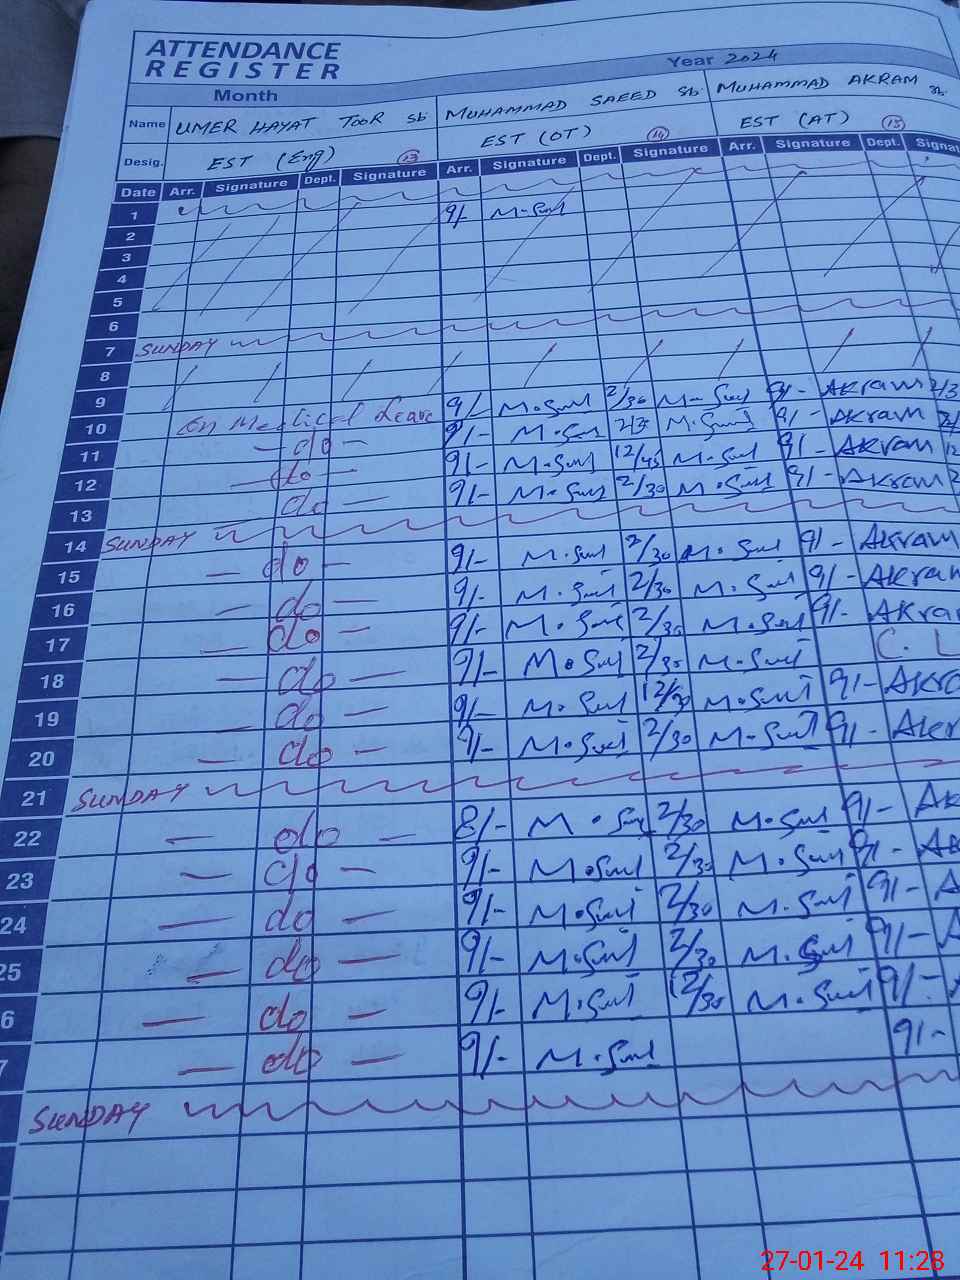 ATTENDANCE
REGISTER
Year 2024
Month
Name UMER HAYAT TOOR Sb MUHAMMAD SAEED Sb MUHAMMAD AKRAM Sb
Desig. EST (Eng) 13 EST (OT) 14 EST (AT) 15
Date Arr. Signature Dept. Signature Arr. Signature Dept. Signature Arr. Signature Dept. Signat
1 9/- M.Saeed
2
3
4
5
6
7 SUNDAY
8
9 On Medical Leave 9/- M.Saeed 2/30 M.Saeed 9/- Akram 2/3
10 — do — 9/- M.Saeed 2/3 M.Saeed 9/- Akram 2/
11 — do — 9/- M.Saeed 12/45 M.Saeed 9/- Akram 12
12 do — 9/- M.Saeed 2/30 M.Saeed 9/- Akram 2
13
14 SUNDAY
15 — do — 9/- M.Saeed 2/30 M.Saeed 9/- Akram
16 — do — 9/- M.Saeed 2/30 M.Saeed 9/- Akram
17 — do — 9/- M.Saeed 2/30 M.Saeed 9/- Akra
18 — do — 9/- M.Saeed 2/30 M.Saeed C. L
19 — do — 9/- M.Saeed 12/30 M.Saeed 9/- Akra
20 — do — 9/- M.Saeed 2/30 M.Saeed 9/- Akra
21 SUNDAY
22 — do — 8/- M.Saeed 2/30 M.Saeed 9/- Ak
23 — do — 9/- M.Saeed 2/30 M.Saeed 9/- Ak
24 — do — 9/- M.Saeed 2/30 M.Saeed 9/- A
25 — do — 9/- M.Saeed 2/30 M.Saeed 9/- A
6 — do — 9/- M.Saeed 12/30 M.Saeed 9/-
7 — do — 9/- M.Saeed 9/-
SUNDAY
27-01-24 11:28